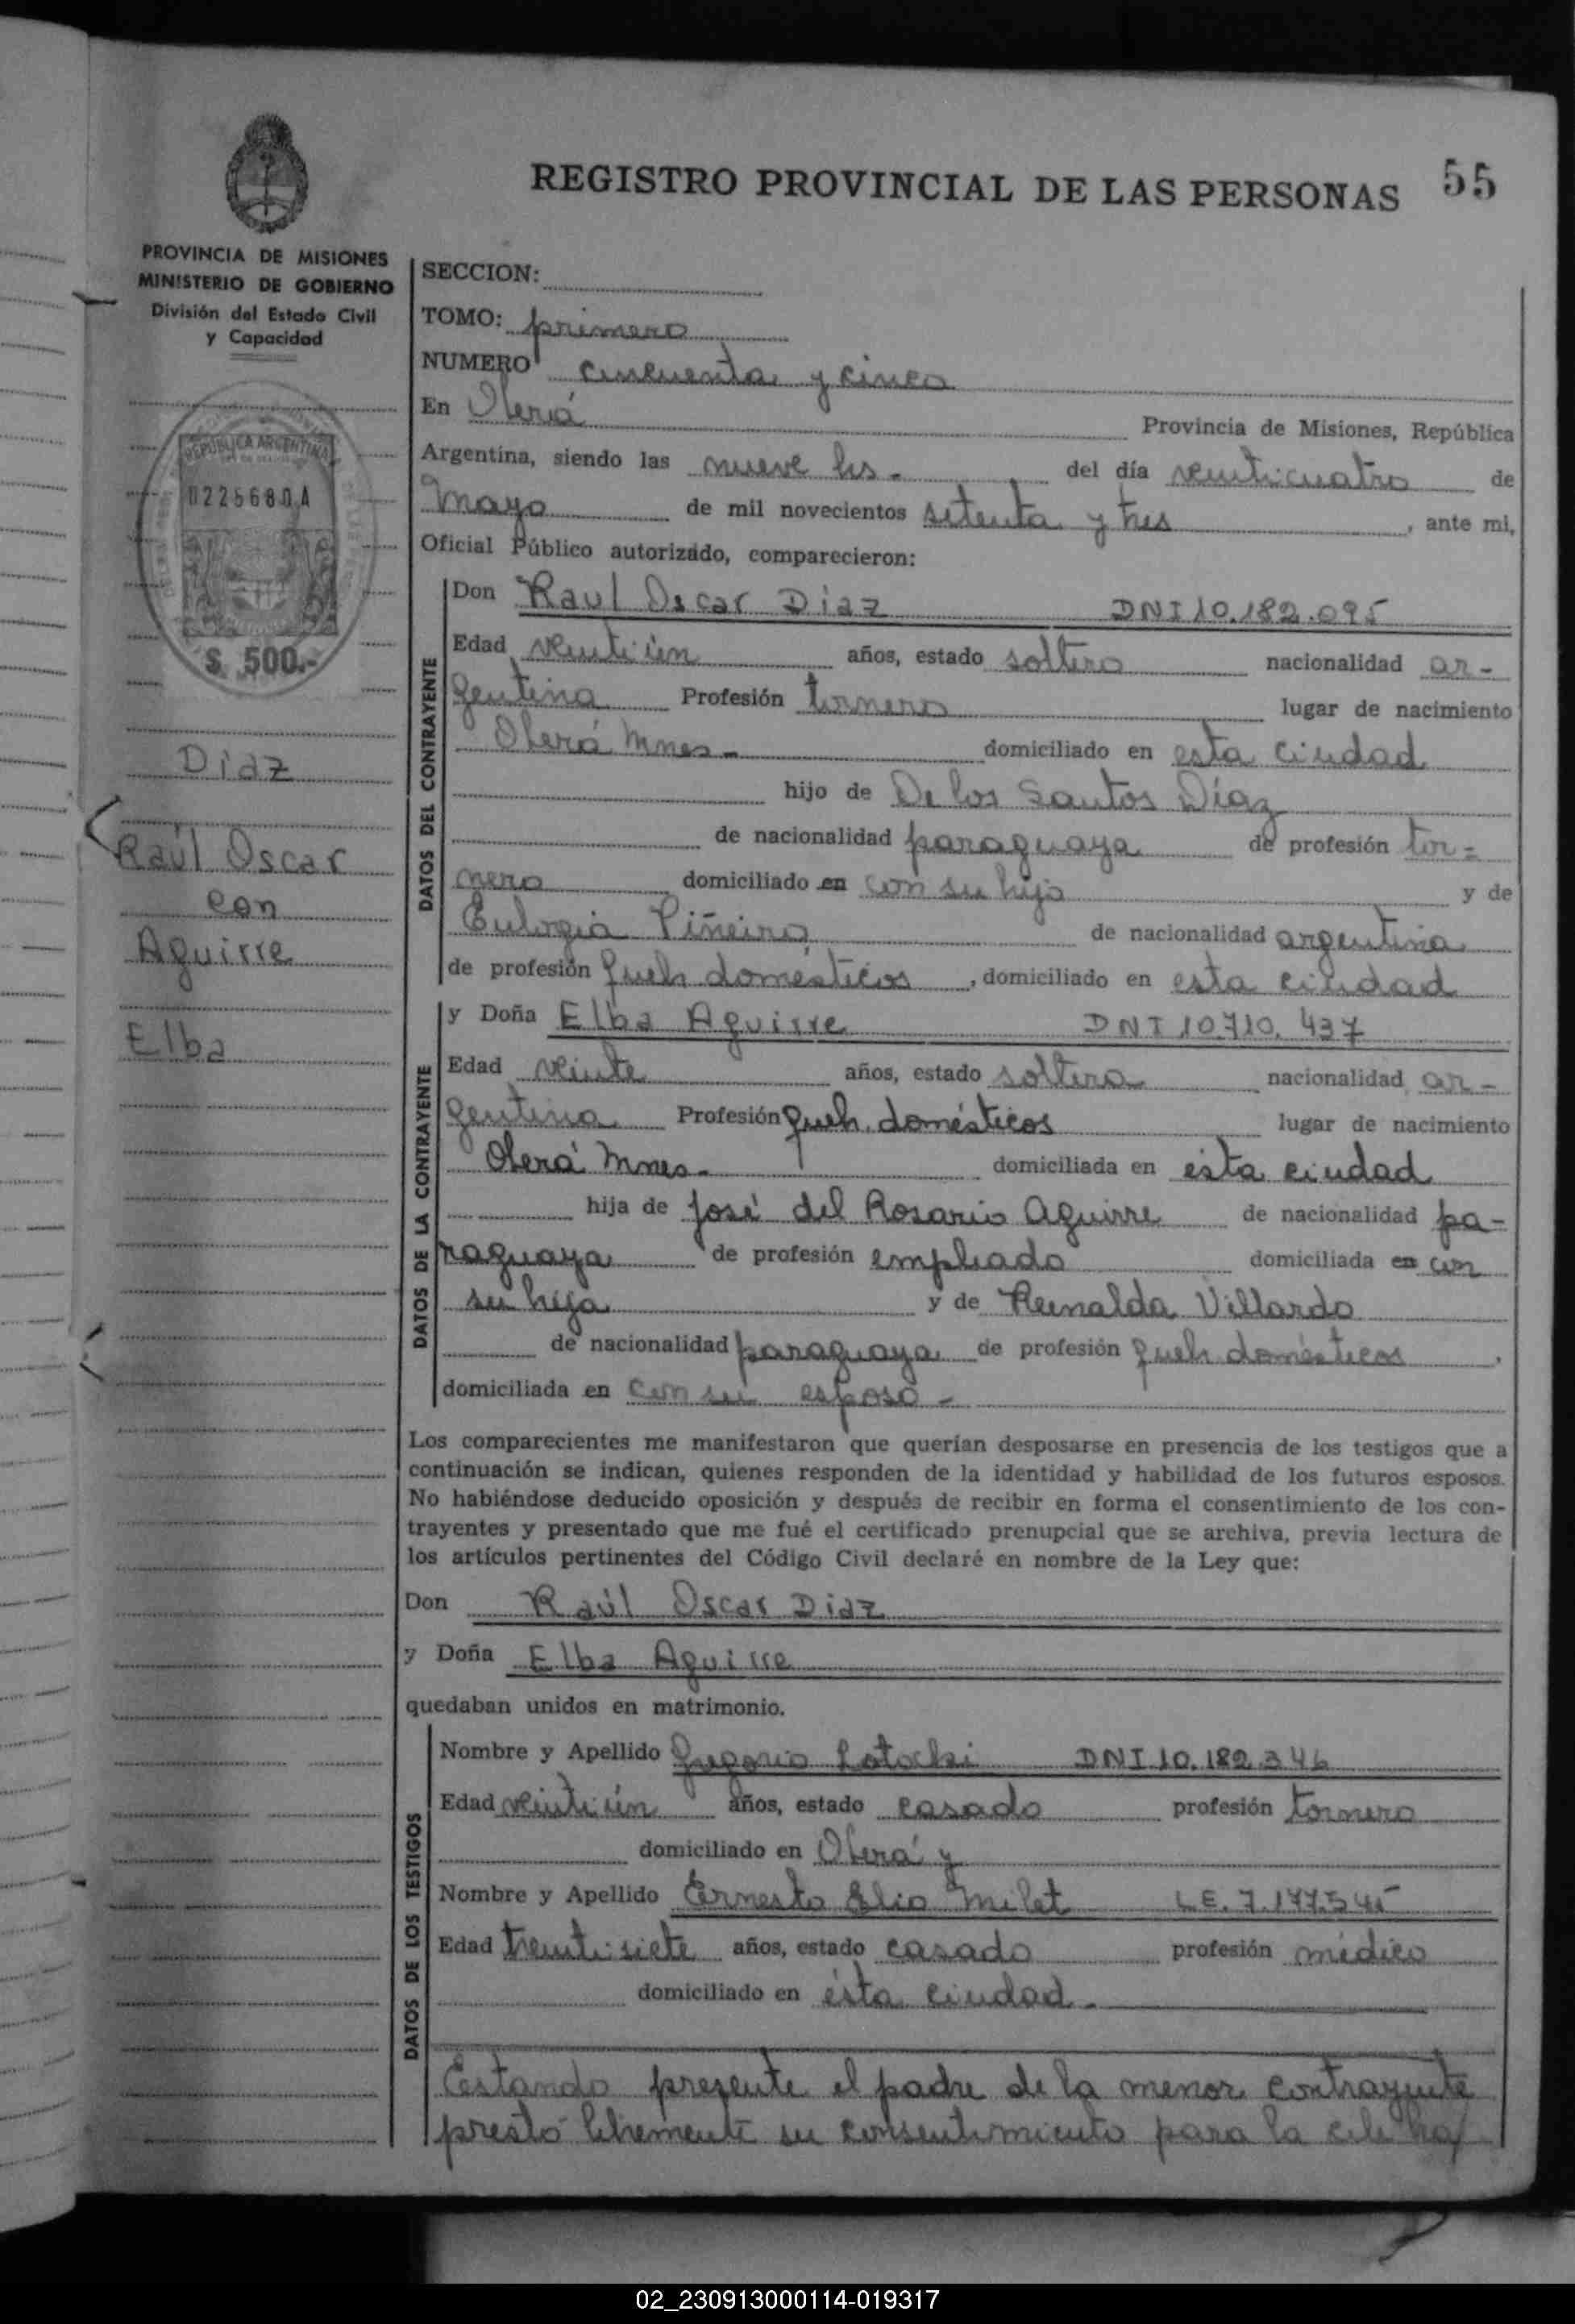 REGISTRO PROVINCIAL DE LAS PERSONAS 55
PROVINCIA DE MISIONES
MINISTERIO DE GOBIERNO
División del Estado Civil
y Capacidad
REPUBLICA ARGENTINA
0225680A
$ 500.-
Díaz
Raúl Oscar
con
Aguirre
Elba
SECCION:
TOMO: primero
NUMERO cincuenta y cinco
En Oberá Provincia de Misiones, República
Argentina, siendo las nueve hs- del día veinticuatro de
Mayo de mil novecientos setenta y tres, ante mi,
Oficial Público autorizado, comparecieron:
DATOS DEL CONTRAYENTE
Don Raul Oscar Diaz DNI 10.182.095
Edad veintiún años, estado soltero nacionalidad ar-
gentina Profesión tornero lugar de nacimiento
Oberá Mnes- domiciliado en esta ciudad
hijo de De los Santos Díaz
de nacionalidad paraguaya de profesión tor-
nero domiciliado en con su hijo y de
Eulogia Piñeiro de nacionalidad argentina
de profesión queh domésticos, domiciliado en esta ciudad
DATOS DE LA CONTRAYENTE
y Doña Elba Aguirre DNI 10.710.437
Edad veinte años, estado soltera nacionalidad ar-
gentina Profesión queh. domésticos lugar de nacimiento
Oberá Mnes- domiciliada en ésta ciudad
hija de José del Rosario Aguirre de nacionalidad pa-
raguaya de profesión empleado domiciliada en con
su hija y de Reinalda Villardo
de nacionalidad paraguaya de profesión queh domésticos,
domiciliada en con su esposo-
Los comparecientes me manifestaron que querían desposarse en presencia de los testigos que a
continuación se indican, quienes responden de la identidad y habilidad de los futuros esposos.
No habiéndose deducido oposición y después de recibir en forma el consentimiento de los con-
trayentes y presentado que me fué el certificado prenupcial que se archiva, previa lectura de
los artículos pertinentes del Código Civil declaré en nombre de la Ley que:
Don Raúl Oscar Diaz
y Doña Elba Aguirre
quedaban unidos en matrimonio.
DATOS DE LOS TESTIGOS
Nombre y Apellido Gregorio Lotocki DNI 10.182.346
Edad veintiún años, estado casado profesión tornero
domiciliado en Oberá y
Nombre y Apellido Ernesto Elio Milet LE. 7.177.545
Edad treintisiete años, estado casado profesión médico
domiciliado en ésta ciudad.
Estando presente el padre de la menor contrayente
prestó libremente su consentimiento para la celebra
02_230913000114-019317